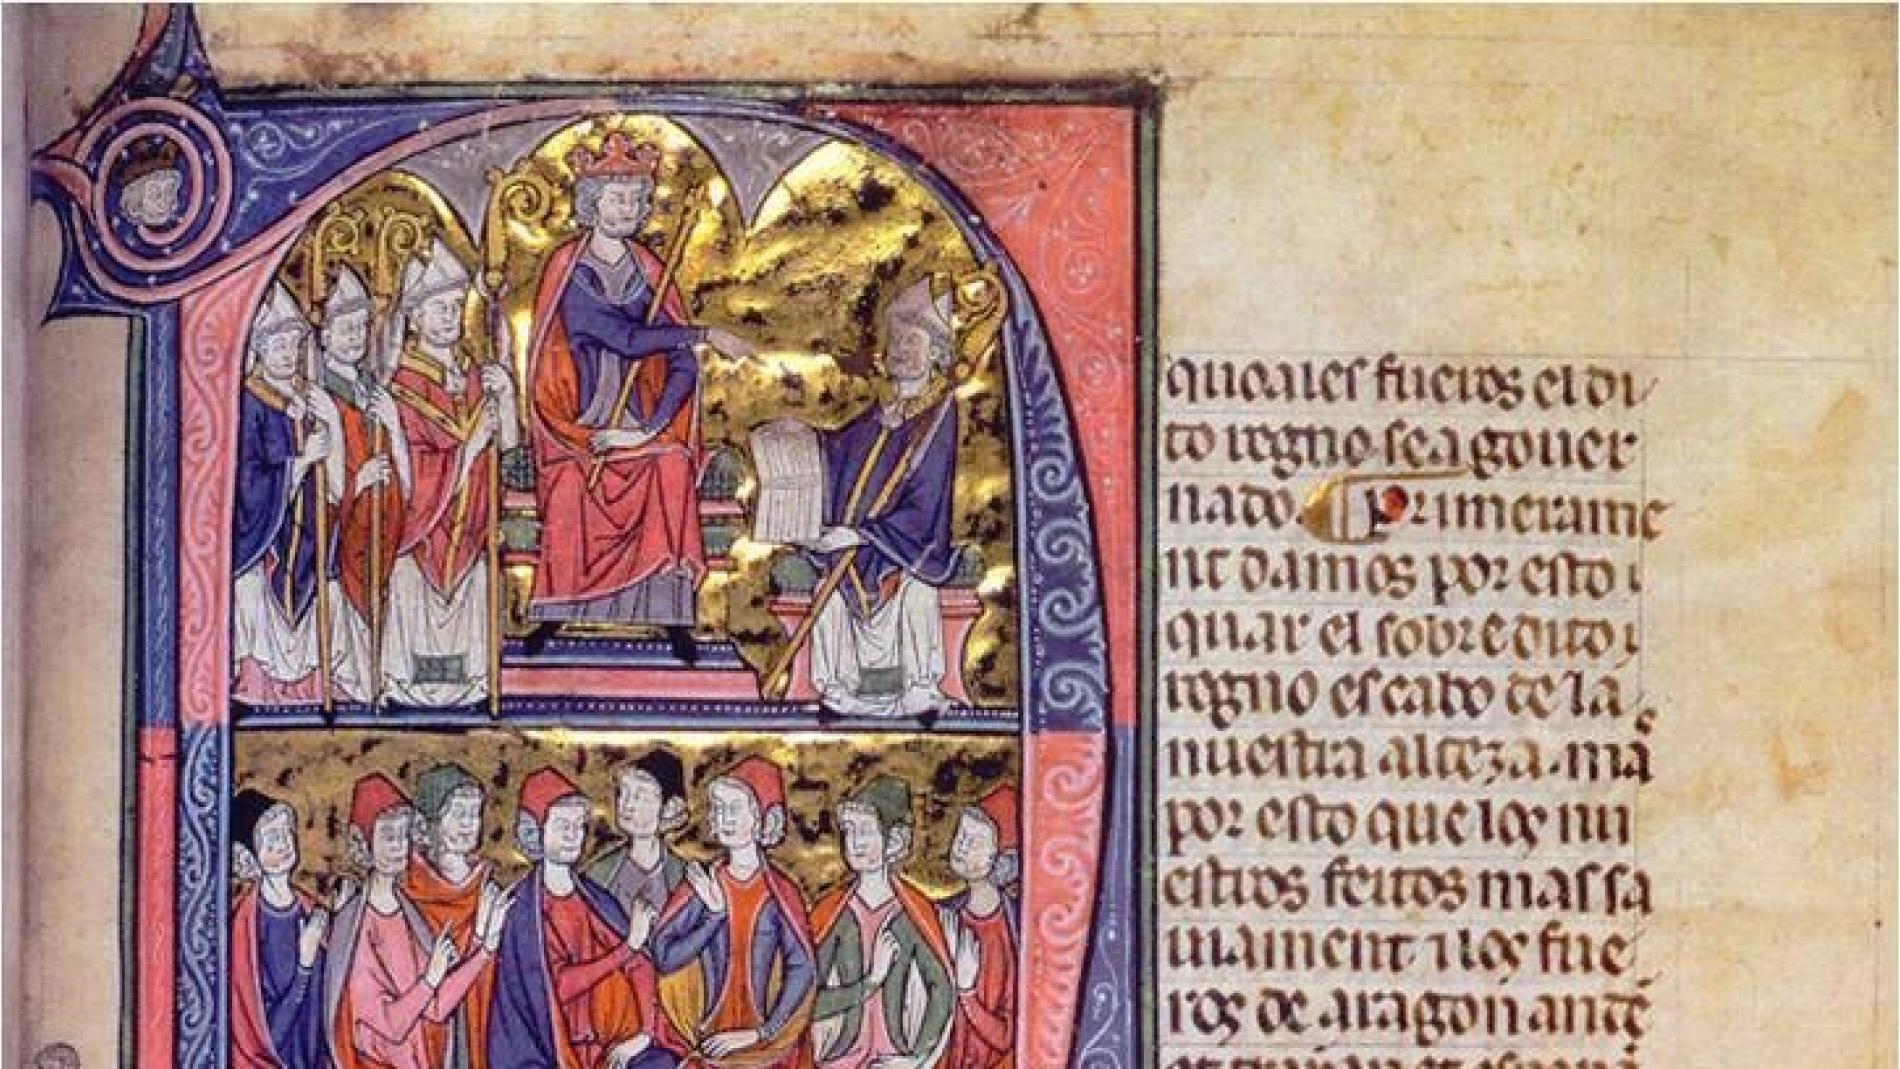 quoales fueros el di
to regno sea gouer
nado. ¶ Primerame
nt damos por esto i
quar el sobredito
regno es cabo de la
nuestra alteza. mas
por esto que los nu
estros feitos mas sa
uiament i los fue
ros de aragon ante